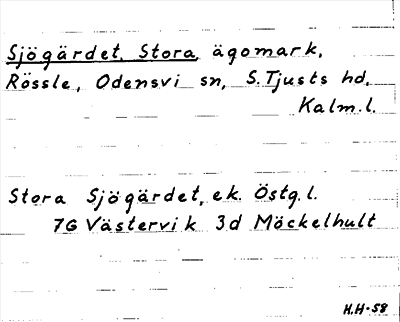 Sjögärdet, Stora, ägomark,
Rössle, Odensvi sn, S. Tjusts hd,
Kalm. l.
Stora Sjögärdet, ek. Östg. l.
7G Västervik 3d Möckelhult
H.H-58